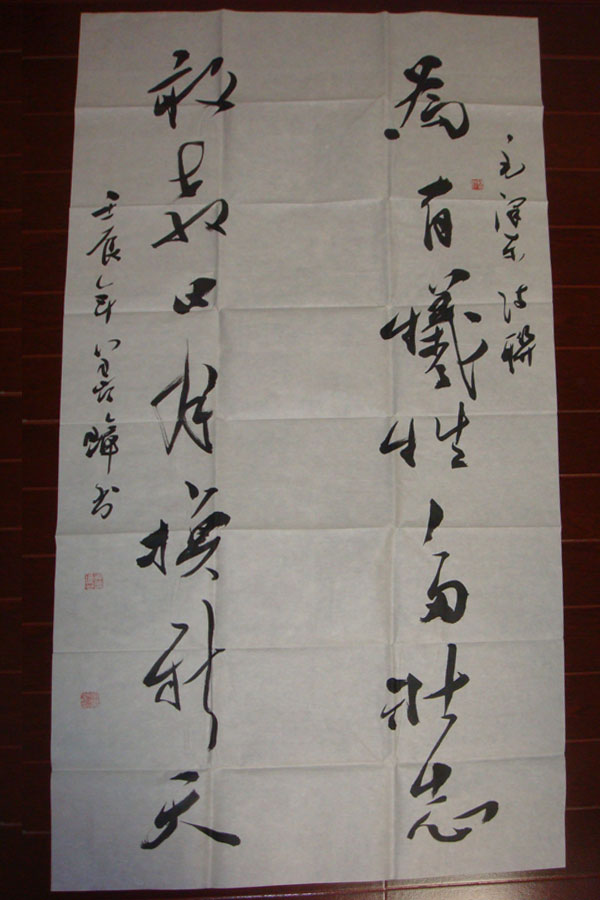 毛澤东诗聯
為有犧牲多壯志
敢教日月換新天
壬辰年书